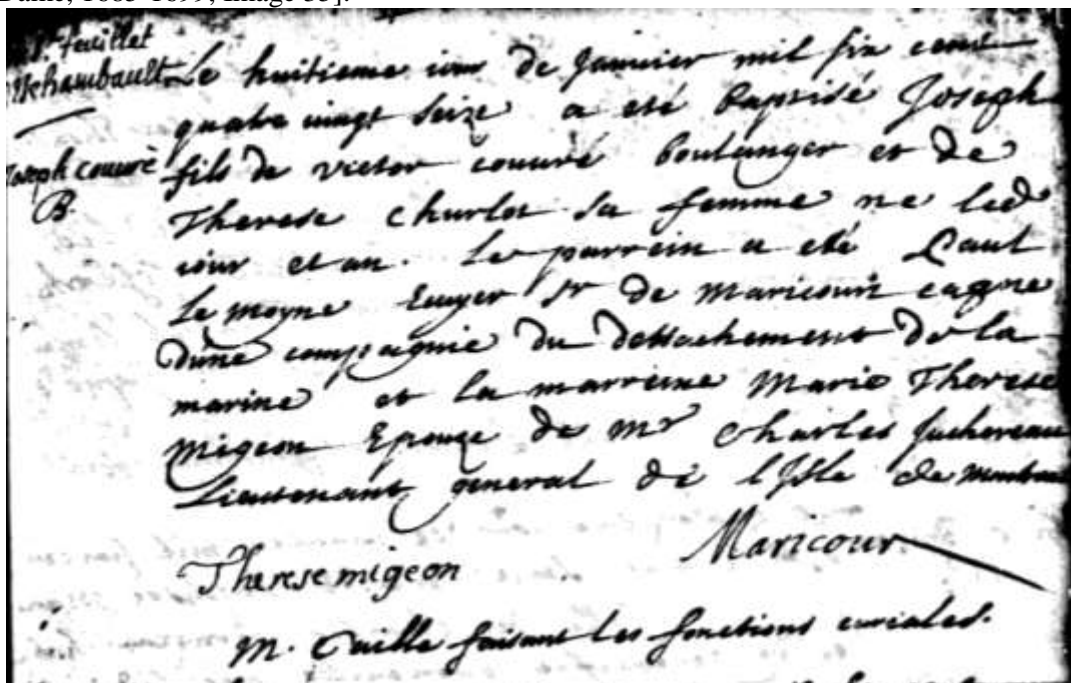 Dame, 1683-1699, Image 35].
1er feuillet
Le huitieme iour de Januier mil six cent
quatre uingt seize a eté Baptisé Joseph
Joseph couuré
B.
fils de victor couuré boulanger et de
Therese churlot sa femme ne led
iour et an. Le parrein a eté Paul
Le moyne Ecuyer sr de maricour capne
dune compagnie du dettachement de la
marine et la marreine Marie Therese
migeon Epouze de Mr Charles Juchereau
Lieutenant general de l'Isle de
Therese migeon
Maricour
M. Caille faisant les fonctions curiales.